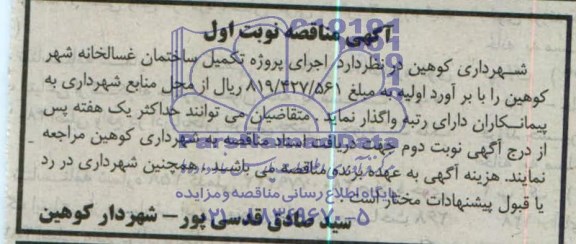 آگهی مناقصه نوبت اول
شهرداری کوهین در نظر دارد اجرای پروژه تکمیل ساختمان غسالخانه شهر
کوهین را با بر آورد اولیه به مبلغ ۸۱۹/۴۲۷/۵۶۱ ریال از محل منابع شهرداری به
پیمانکاران دارای رتبه واگذار نماید. متقاضیان می توانند حداکثر یک هفته پس
از درج آگهی نوبت دوم جهت دریافت اسناد مناقصه به شهرداری کوهین مراجعه
نمایند. هزینه آگهی به عهده برنده مناقصه می باشد. همچنین شهرداری در رد
یا قبول پیشنهادات مختار است.
پایگاه اطلاع رسانی مناقصه و مزایده
سید صادق قدسی پور - شهردار کوهین